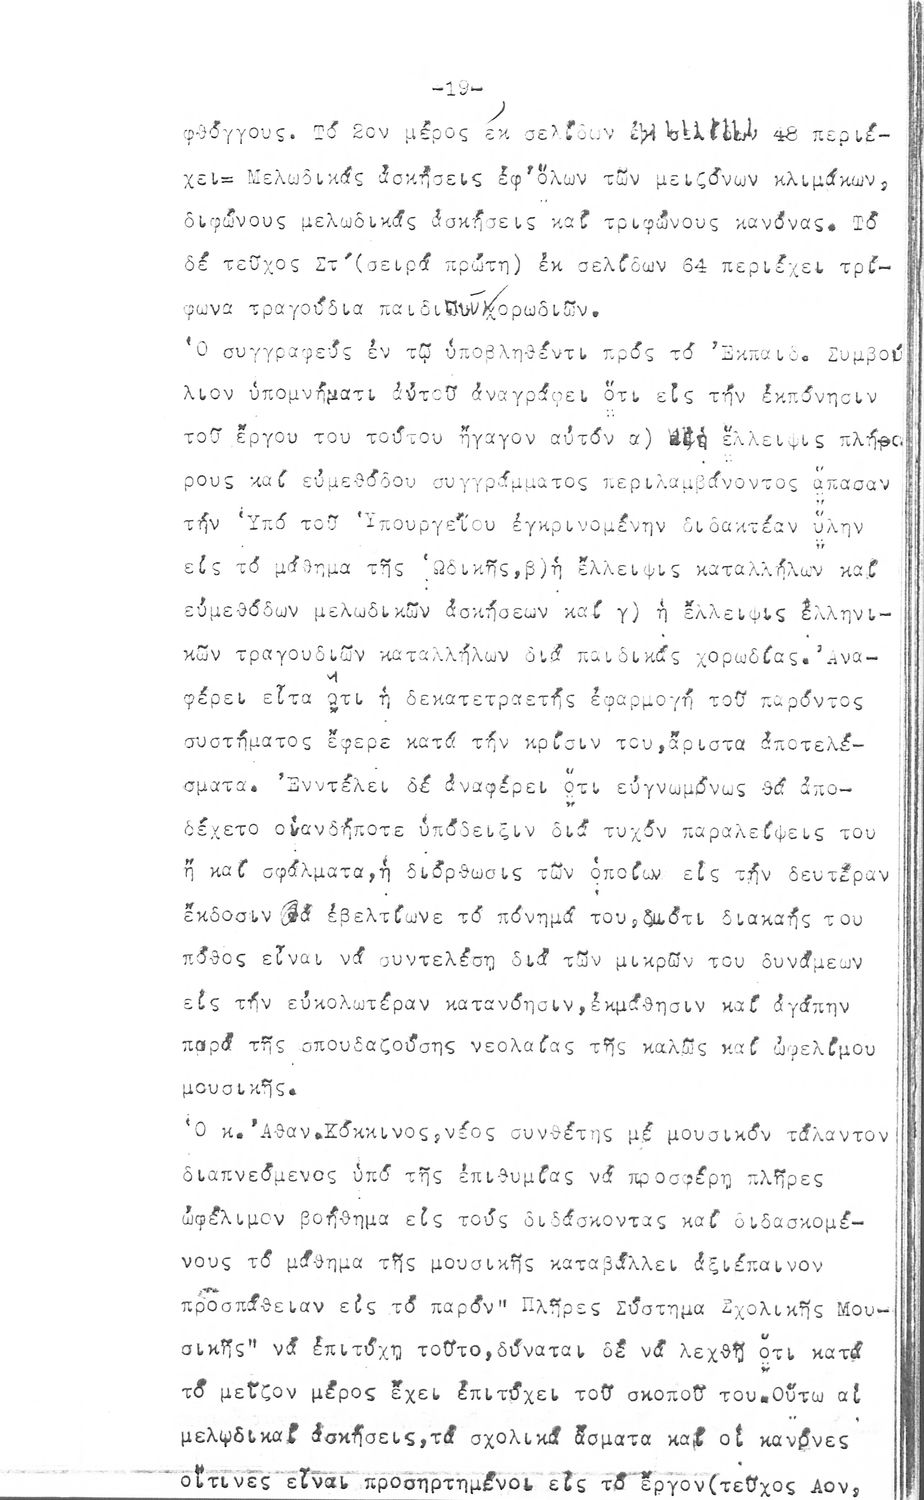 -19-
φθόγγους. Τό 2ον μέρος ἐκ σελίδων 48 περιέ-
χει= Μελωδικάς ἀσκήσεις ἐφ'ὅλων τῶν μειζόνων κλιμάκων,
διφώνους μελωδικάς ἀσκήσεις καί τριφώνους κανόνας. Τό
δέ τεῦχος Στ´(σειρά πρώτη) ἐκ σελίδων 64 περιέχει τρί-
φωνα τραγούδια παιδικῶν χορωδιῶν.
Ὁ συγγραφεύς ἐν τῷ ὑποβληθέντι πρός τό Ἐκπαιδ. Συμβού
λιον ὑπομνήματι αὐτοῦ ἀναγράφει ὅτι εἰς τήν ἐκπόνησιν
τοῦ ἔργου του τούτου ἤγαγον αὐτόν α) ἡ ἔλλειψις πλή-
ρους καί εὐμεθόδου συγγράμματος περιλαμβάνοντος ἅπασαν
τήν Ὑπό τοῦ Ὑπουργείου ἐγκρινομένην διδακτέαν ὕλην
εἰς τό μάθημα τῆς Ὠδικῆς,β)ἡ ἔλλειψις καταλλήλων καί
εὐμεθόδων μελωδικῶν ἀσκήσεων καί γ) ἡ ἔλλειψις ἑλληνι-
κῶν τραγουδιῶν καταλλήλων διά παιδικάς χορωδίας.Ἀνα-
φέρει εἶτα ὅτι ἡ δεκατετραετής ἐφαρμογή τοῦ παρόντος
συστήματος ἔφερε κατά τήν κρίσιν του,ἄριστα ἀποτελέ-
σματα. Ἐνντέλει δέ ἀναφέρει ὅτι εὐγνωμόνως θά ἀπο-
δέχετο οἱανδήποτε ὑπόδειξιν διά τυχόν παραλείψεις του
ἤ καί σφάλματα,ἡ διόρθωσις τῶν ὁποίων εἰς τήν δευτέραν
ἔκδοσιν θά ἐβελτίωνε τό πόνημά του,διότι διακαής του
πόθος εἶναι νά συντελέση διά τῶν μικρῶν του δυνάμεων
εἰς τήν εὐκολωτέραν κατανόησιν,ἐκμάθησιν καί ἀγάπην
παρά τῆς σπουδαζούσης νεολαίας τῆς καλῶς καί ὠφελίμου
μουσικῆς.
Ὁ κ.Ἀθαν.Κόκκινος,νέος συνθέτης μέ μουσικόν τάλαντον
διαπνεόμενος ὑπό τῆς ἐπιθυμίας νά προσφέρη πλῆρες
ὠφέλιμον βοήθημα εἰς τούς διδάσκοντας καί διδασκομέ-
νους τό μάθημα τῆς μουσικῆς καταβάλλει ἀξιέπαινον
προσπάθειαν εἰς τό παρόν" Πλῆρες Σύστημα Σχολικῆς Μου-
σικῆς" νά ἐπιτύχη τοῦτο,δύναται δέ νά λεχθῇ ὅτι κατά
τό μεῖζον μέρος ἔχει ἐπιτύχει τοῦ σκοποῦ του.Οὕτω αἱ
μελῳδικαί ἀσκήσεις,τά σχολικά ἄσματα καί οἱ κανόνες
οἵτινες εἶναι προσηρτημένοι εἰς τό ἔργον(τεῦχος Αον,